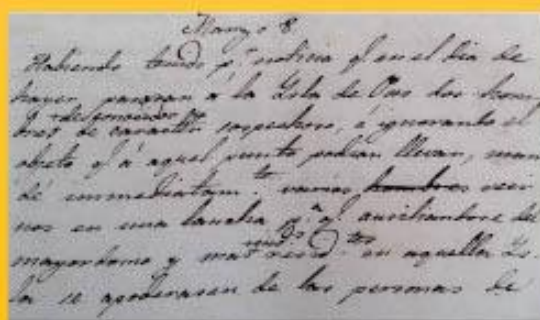 Marzo 8
Habiendo tenido pr. noticia q en el dia de
hayer, pasaron á la Isla de Oro dos hom
q desconocidos
bres de caracter sospechoso, é ignorante el
objeto q á aquel punto podian llevar, man
dé immediatamte. varios hombres veci
nos en una lancha pa. q auxiliandose del
mayordomo y mas residtes. en aquella Is
la se apoderasen de las personas de